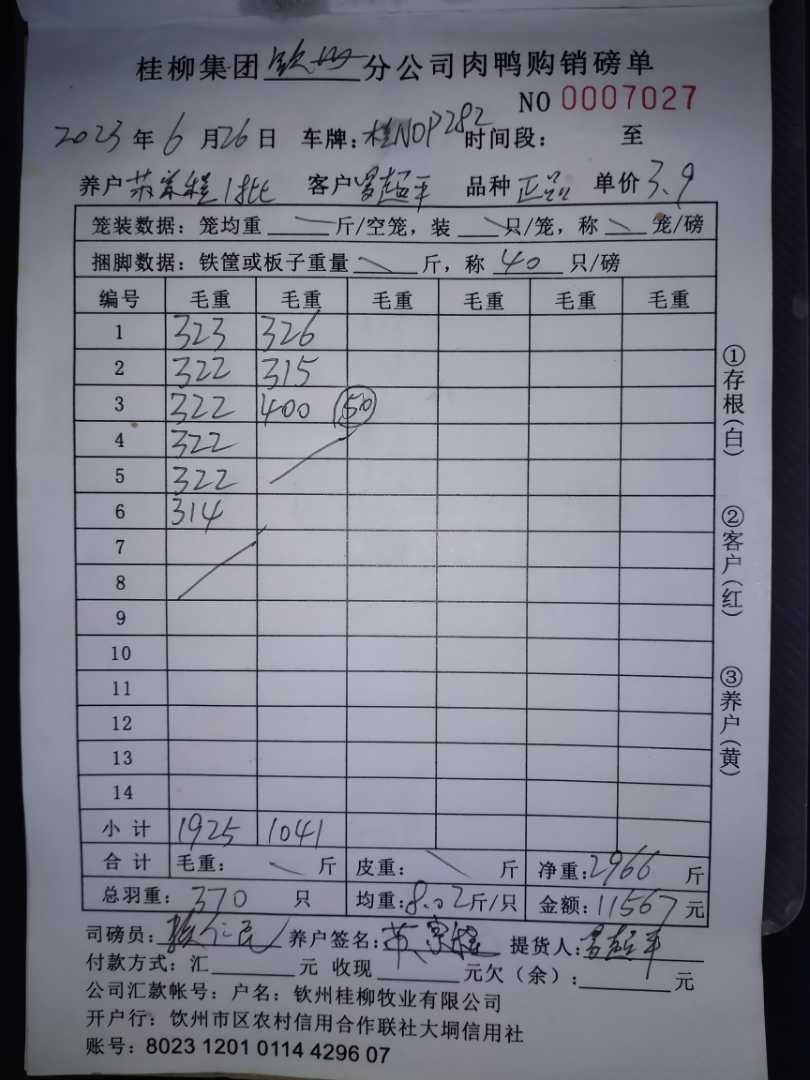 桂柳集团钦州分公司肉鸭购销磅单
NO 0007027
2023年6月26日 车牌:桂NOP282 时间段: 至
养户 苏荣程1批 客户 罗超平 品种 正品 单价 3.9
笼装数据:笼均重 斤/空笼,装 只/笼,称 笼/磅
捆脚数据:铁筐或板子重量 斤,称 40 只/磅
编号 毛重 毛重 毛重 毛重 毛重 毛重
1 323 326
2 322 315
3 322 400 50
4 322
5 322
6 314
7
8
9
10
11
12
13
14
小计 1925 1041
合计 毛重: 斤 皮重: 斤 净重:2966 斤
总羽重: 370 只 均重:8.02斤/只 金额:11567元
司磅员: 养户签名: 提货人:罗超平
付款方式:汇 元 收现 元欠(余): 元
公司汇款帐号:户名:钦州桂柳牧业有限公司
开户行:饮州市区农村信用合作联社大垌信用社
账号:8023 1201 0114 4296 07
①存根(白)
②客户(红)
③养户(黄)